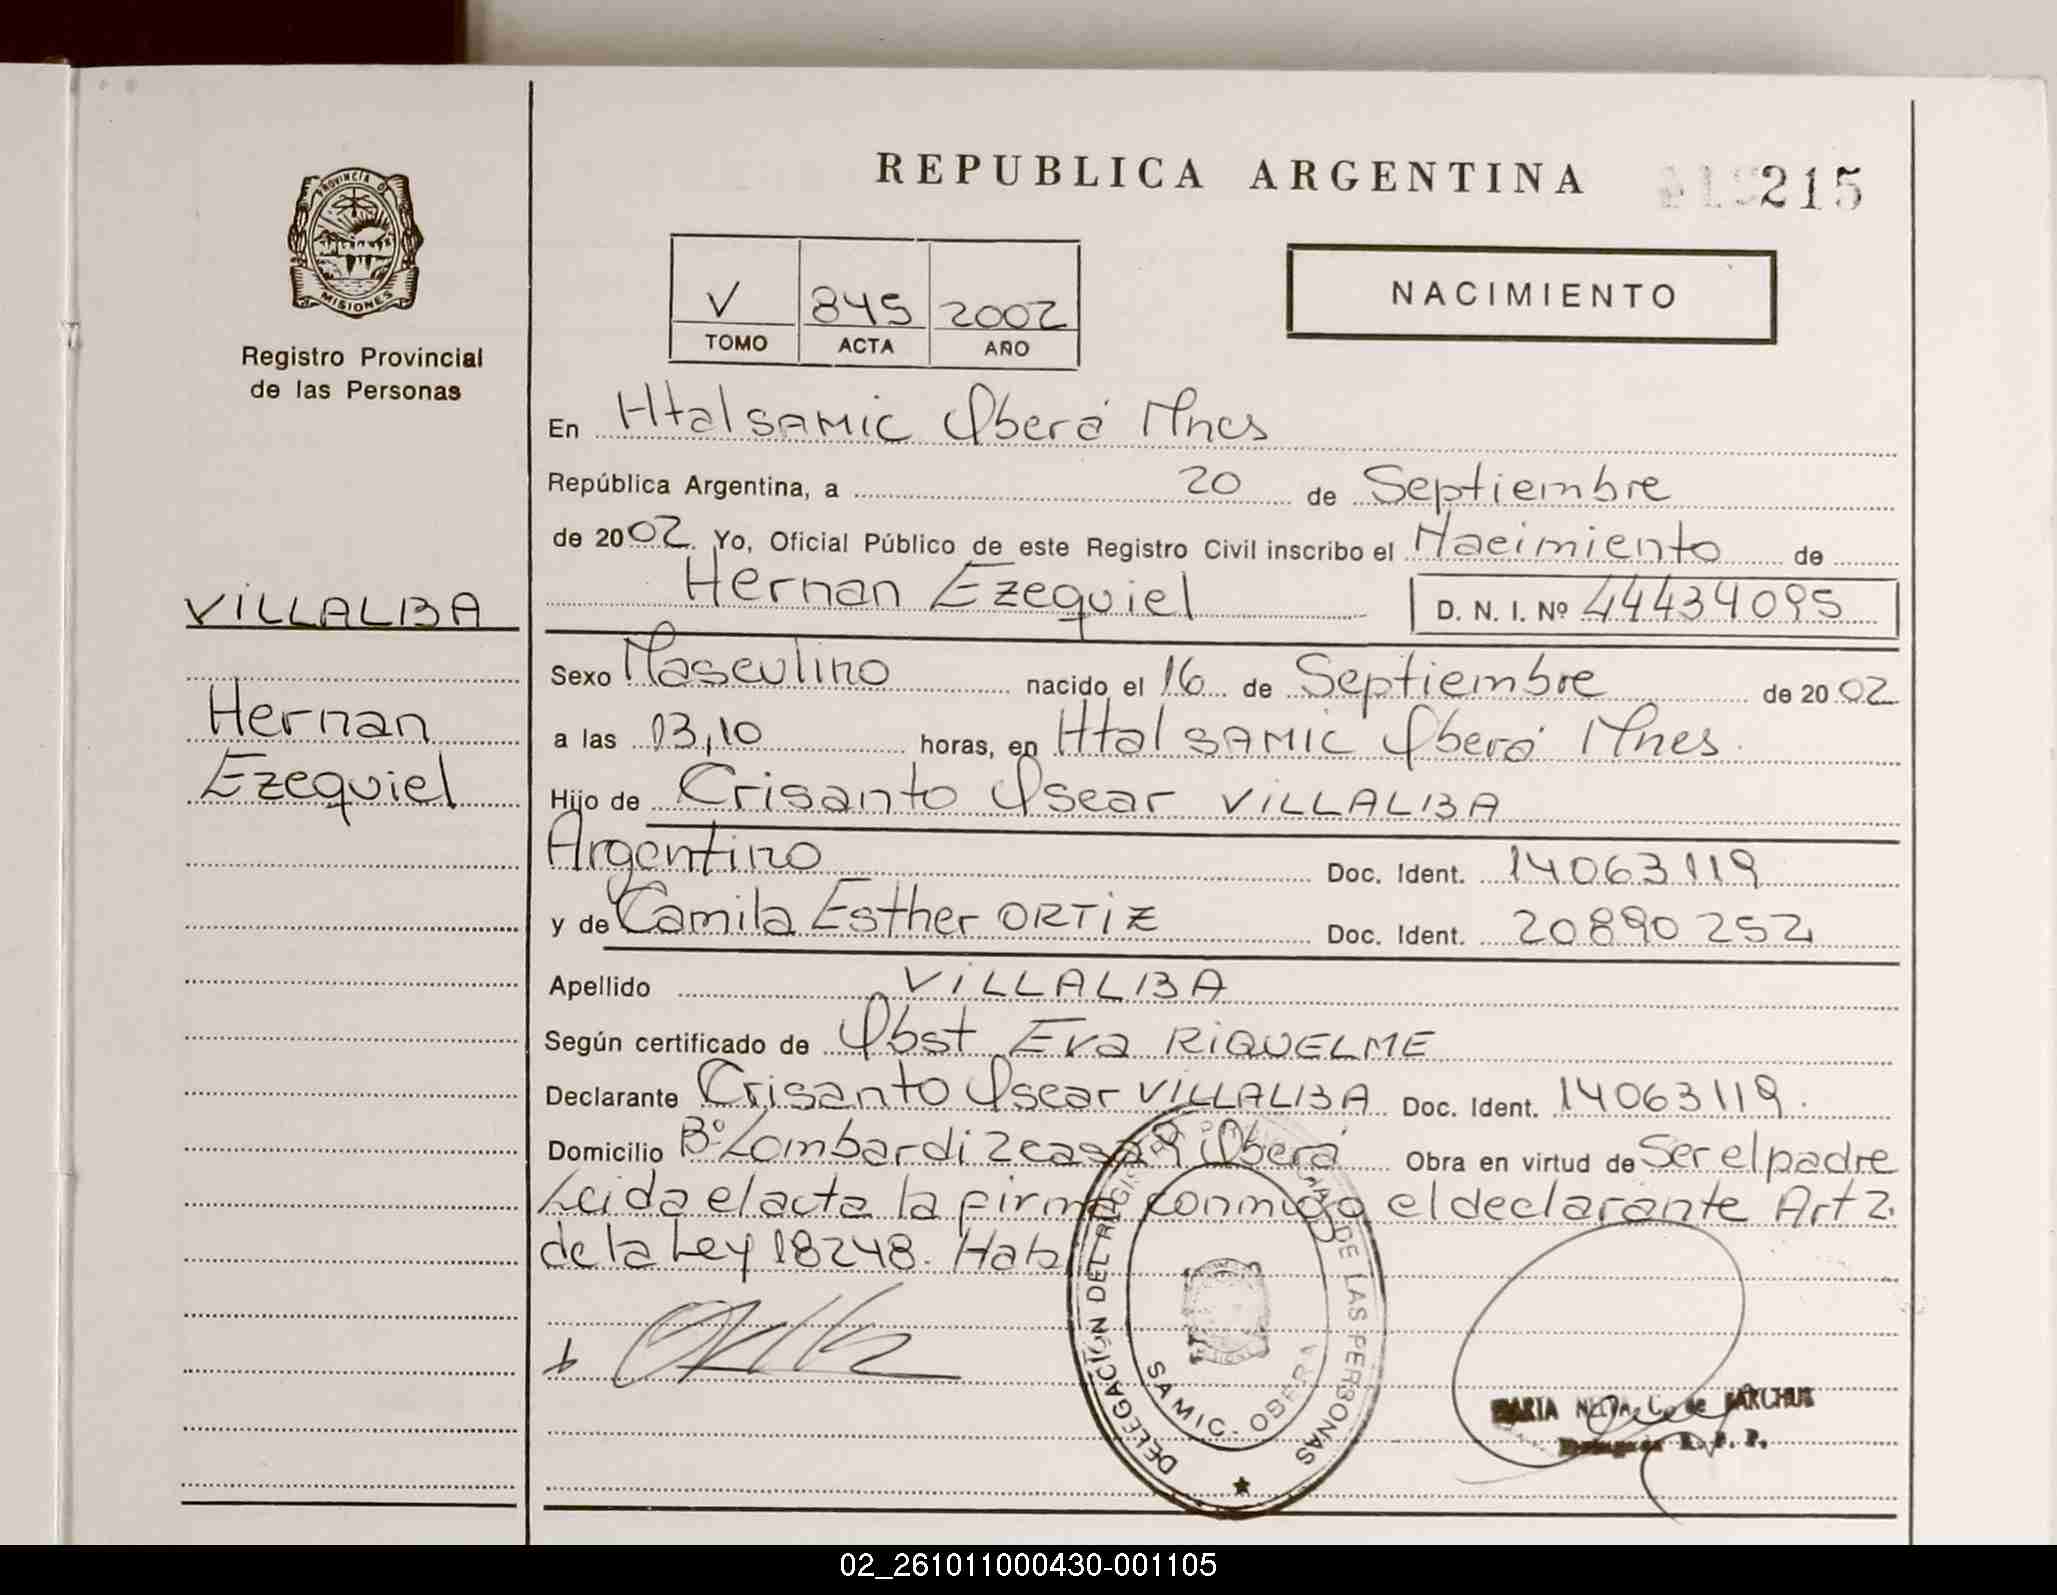 REPUBLICA ARGENTINA
215
PROVINCIA DE
MISIONES
Registro Provincial
de las Personas
V 845 2002
TOMO ACTA AÑO
NACIMIENTO
En Htal SAMIC Oberá Mnes
República Argentina, a 20 de Septiembre
de 2002. Yo, Oficial Público de este Registro Civil inscribo el Nacimiento de
Hernan Ezequiel D. N. I. Nº 44434095
VILLALBA
Hernan
Ezequiel
Sexo Masculino nacido el 16 de Septiembre de 2002
a las 03,10 horas, en Htal SAMIC Oberá Mnes.
Hijo de Crisanto Oscar VILLALBA
Argentino Doc. Ident. 14063119
y de Camila Esther ORTIZ Doc. Ident. 20890252
Apellido VILLALBA
Según certificado de Obst Eva RIQUELME
Declarante Crisanto Oscar VILLALBA Doc. Ident. 14063119.
Domicilio Bº Lombardi Oberá Obra en virtud de Ser el padre
Leida el acta la firma conmigo el declarante Art 2.
de la Ley 18248. Hab
DELEGACIÓN DEL REGISTRO PROVINCIAL DE LAS PERSONAS
SAMIC. OBERA
MARIA de
R. P. P.
02_261011000430-001105